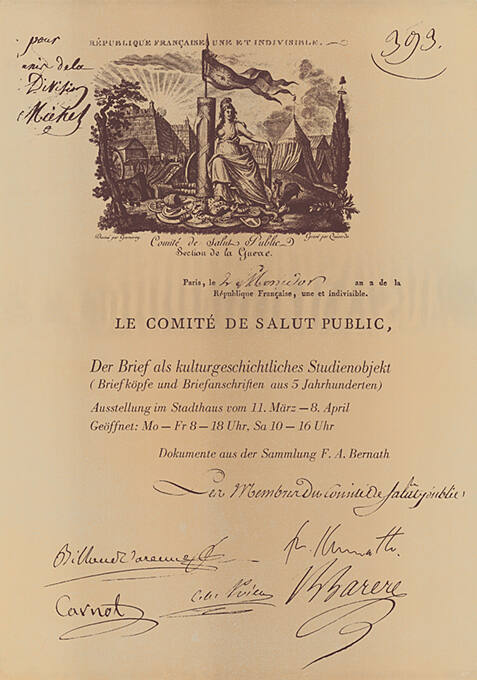 pour
avis de la
Division
Michel
RÉPUBLIQUE FRANÇAISE UNE ET INDIVISIBLE.
393
Comité de Salut Public
Section de la Guerre.
Paris, le 2 Messidor an 2 de la
République Française, une et indivisible.
LE COMITÉ DE SALUT PUBLIC,
Der Brief als kulturgeschichtliches Studienobjekt
(Briefköpfe und Briefanschriften aus 5 Jahrhunderten)
Ausstellung im Stadthaus vom 11. März – 8. April
Geöffnet: Mo – Fr 8 – 18 Uhr, Sa 10 – 16 Uhr
Dokumente aus der Sammlung F. A. Bernath
Les Membres du comité de salut public
Billaud Varenne
Carnot
B Barere